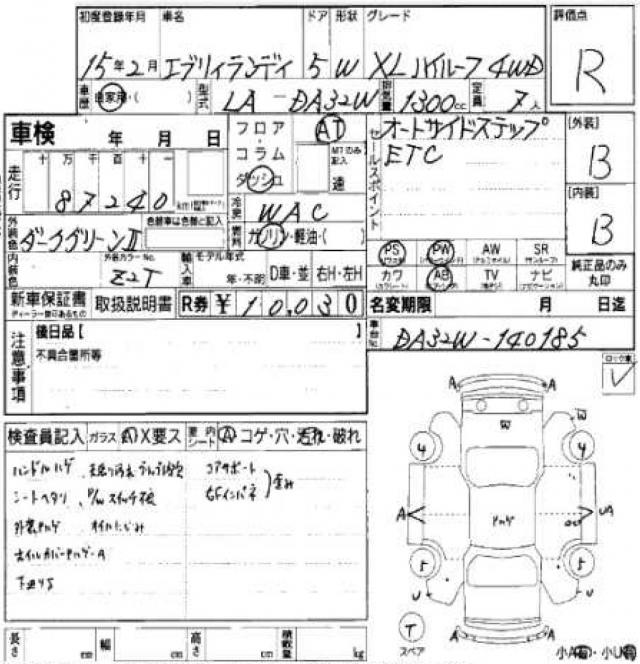 初度登録年月 車名 ドア 形状 グレード 評価点
15年2月 エブリィランディ 5 W XL ハイルーフ 4WD R
車歴 自家用・( ) 型式 LA-DA32W 排気量 1300cc 定員 7人
車検 年 月 日 フロア・コラム ダッシュ AT MTのみ記入 速
セールスポイント オートサイドステップ
ETC
[外装] B
[内装] B
走行 十 万 千 百 十 一
87240 km
冷房 WAC
燃料 ガソリン・軽油・( )
外装色 ダークグリーンII 色替車は色替と記入
内装色 外装カラーNo. Z2T
輸入車 モデル年式 年・不明 D車・並 右H・左H
PS PW AW SR
カワ AB TV ナビ
純正品のみ丸印
新車保証書 取扱説明書 R券 ¥10,030
ディーラー印のあるもの
名変期限 月 日迄
車台No. DA32W-140185
注意事項 後日品【 】
不具合箇所等
検査員記入 ガラス A X要ス 要内シート A コゲ・穴・汚れ・破れ
ハンドルハゲ
シートヘタリ P/Wスイッチ不良
コアサポート
右Fインパネ 歪み
下廻りS
W W
A A
4 4
A UA
5 5
U U
A A
T
スペア
小A・小U
長さ cm 幅 cm 高さ cm 積載量 kg